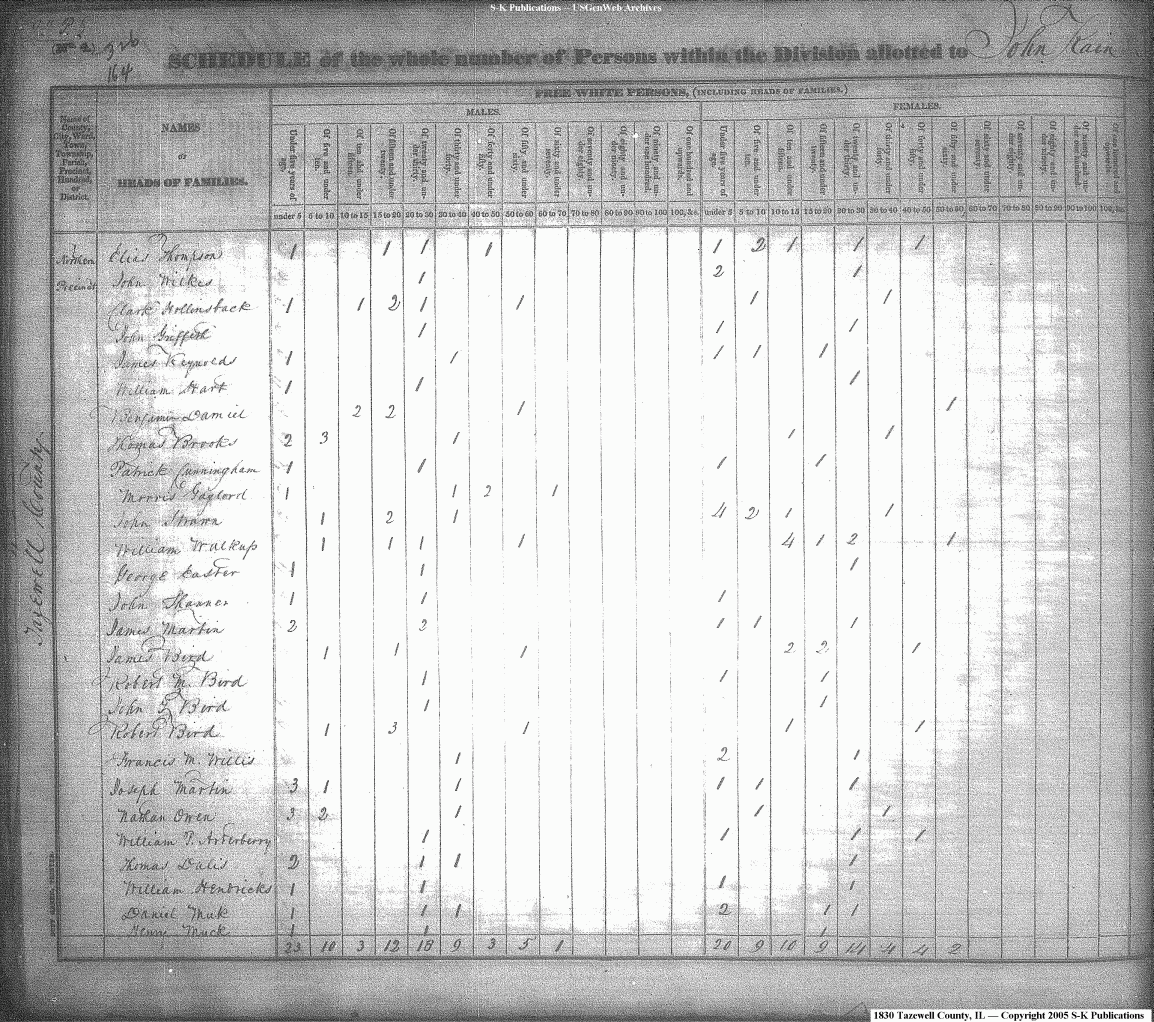 S-K Publications — USGenWeb Archives
326
164
SCHEDULE of the whole number of Persons within the Division allotted to John Kain
FREE WHITE PERSONS, (INCLUDING HEADS OF FAMILIES.)
MALES. FEMALES.
Name of County, City, Ward, Town, Township, Parish, Precinct, Hundred, or District.
NAMES
OF
HEADS OF FAMILIES.
under 5 5 to 10 10 to 15 15 to 20 20 to 30 30 to 40 40 to 50 50 to 60 60 to 70 70 to 80 80 to 90 90 to 100 100, &c. under 5 5 to 10 10 to 15 15 to 20 20 to 30 30 to 40 40 to 50 50 to 60 60 to 70 70 to 80 80 to 90 90 to 100 100, &c.
Tazewell County
Northern Elias Thompson 1 1 1 1 1 2 1 1 1
Precinct John Wilkes 1 2 1
Clark Hollinsback 1 1 2 1 1 1 1
John Griffith 1 1 1
James Reynolds 1 1 1 1 1
William Hart 1 1 1
Benjamin Darniel 2 2 1 1
Thomas Brooks 2 3 1 1 1
Patrick Cunningham 1 1 1 1
Morris Gaylord 1 1 2 1
John Strawn 1 2 1 4 2 1 1
William Walkup 1 1 1 1 4 1 2 1
George Easter 1 1 1
John Thanner 1 1 1
James Martin 2 2 1 1 1
James Bird 1 1 1 2 2 1
Robert M. Bird 1 1 1
John G Bird 1 1
Robert Bird 1 3 1 1 1
Francis M. Willis 1 2 1
Joseph Martin 3 1 1 1 1 1
Nathan Owen 3 2 1 1 1
William T. Arterberry 1 1 1 1
Thomas Dalis 2 1 1 1
William Hendricks 1 1 1 1
Daniel Muk 1 1 1 2 1 1
Henry Muck 1 1 1
23 10 3 12 18 9 3 5 1 20 9 10 9 14 4 4 2
1830 Tazewell County, IL — Copyright 2005 S-K Publications